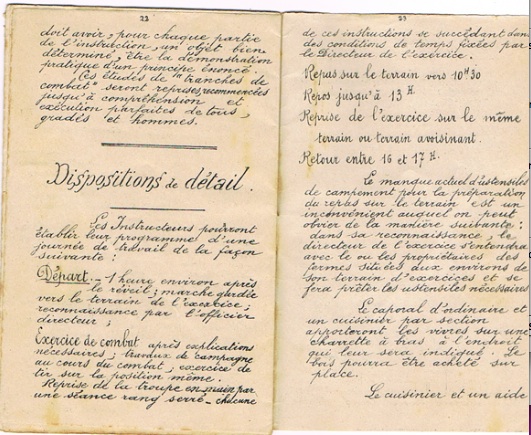 22
doit avoir, pour chaque partie
de l'instruction, un objet bien
déterminé, être la démonstration
pratique d'un principe énoncé.
Ces études de "tranches de
combat" seront reprises, recommencées
jusqu'à compréhension et
exécution parfaites de tous,
gradés et hommes.
Dispositions de détail.
Les Instructeurs pourront
établir leur programme d'une
journée de travail de la façon
suivante :
Départ. - 1 heure environ après
le réveil ; marche gardée
vers le terrain de l'exercice ;
reconnaissance par l'officier
directeur ;
Exercice de combat après explications
nécessaires ; travaux de campagne
au cours du combat, exercice de
tir sur la position même.
Reprise de la troupe en main par
une séance rang serré - chacune
23
de ces instructions se succédant dans
des conditions de temps fixées par
le Directeur de l'exercice.
Repas sur le terrain vers 10H30
Repos jusqu'à 13H.
Reprise de l'exercice sur le même
terrain ou terrain avoisinant.
Retour entre 16 et 17H.
Le manque actuel d'ustensiles
de campement pour la préparation
du repas sur le terrain est un
inconvénient auquel on peut
obvier de la manière suivante :
dans sa reconnaissance, le
directeur de l'exercice s'entendra
avec le ou les propriétaires des
fermes situées aux environs de
son terrain d'exercices et se
fera prêter les ustensiles nécessaires
Le caporal d'ordinaire et
un cuisinier par section
apporteront les vivres sur une
charrette à bras à l'endroit
qui leur sera indiqué. Le
bois pourra être acheté sur
place.
Le cuisinier et un aide